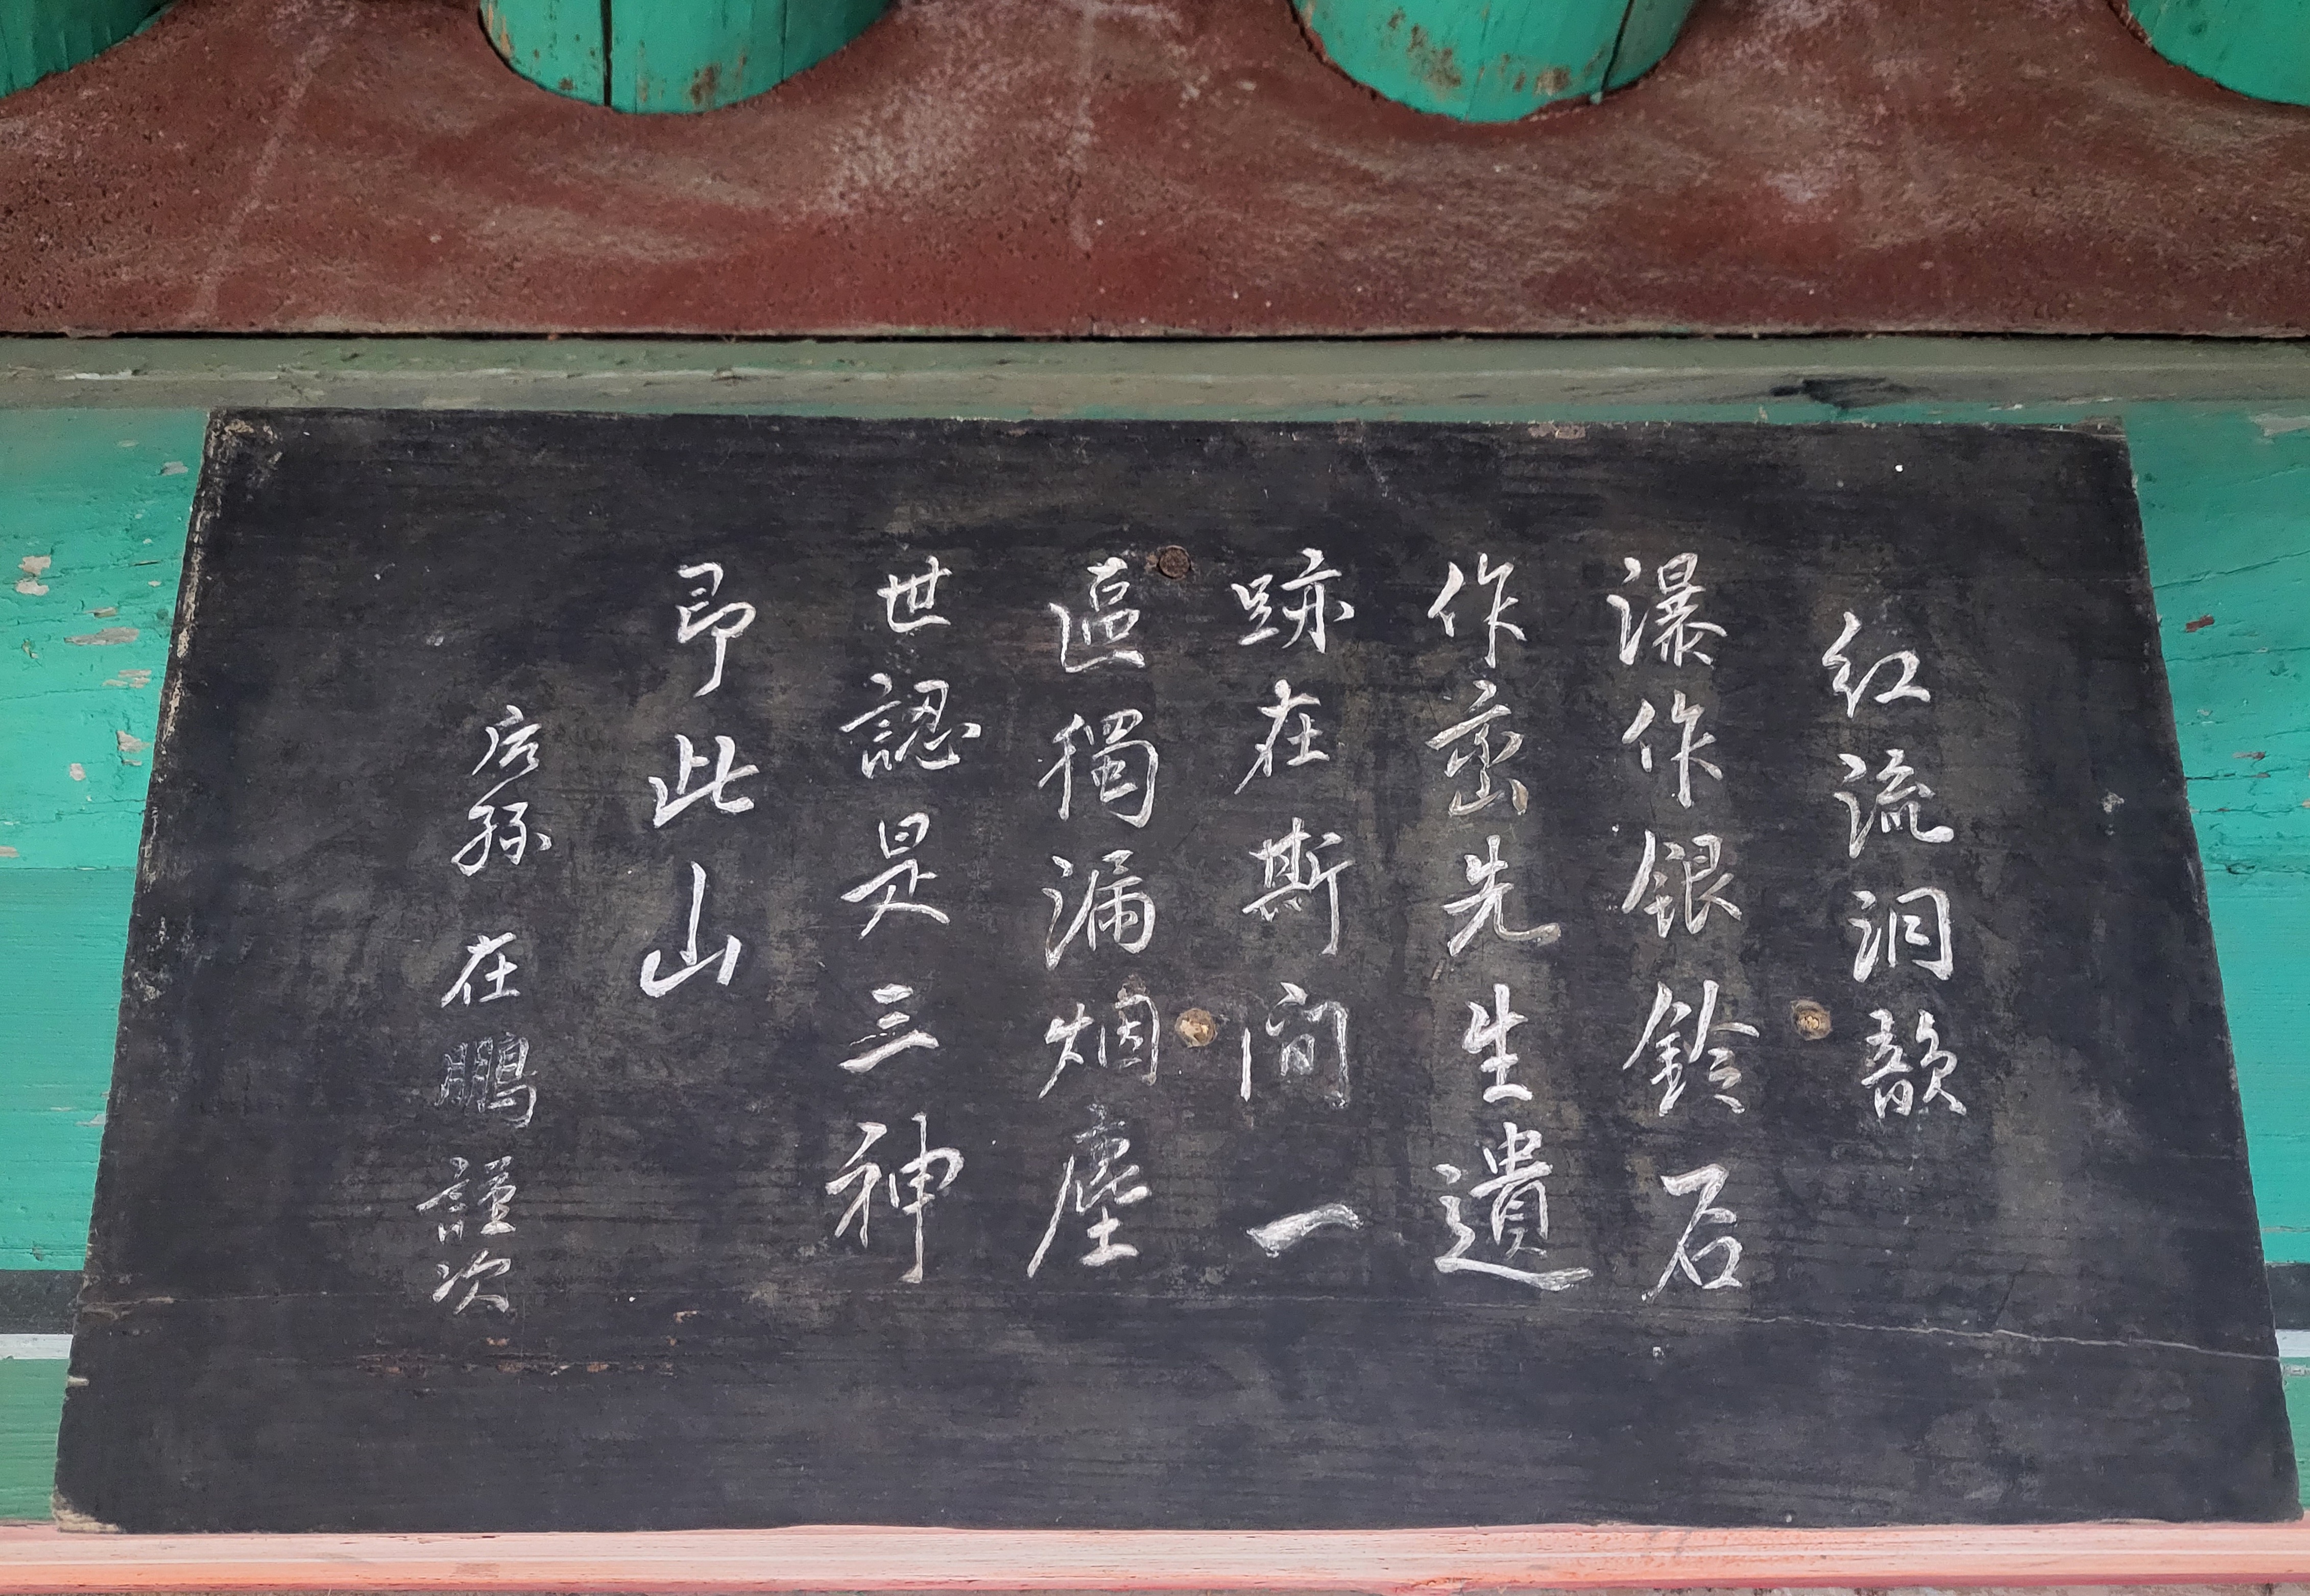 紅流洞韻
瀑作銀鈴石
作巒先生遺
跡在斯間一
區獨漏烟塵
世認是三神
即此山
后孫 在鵬 謹次